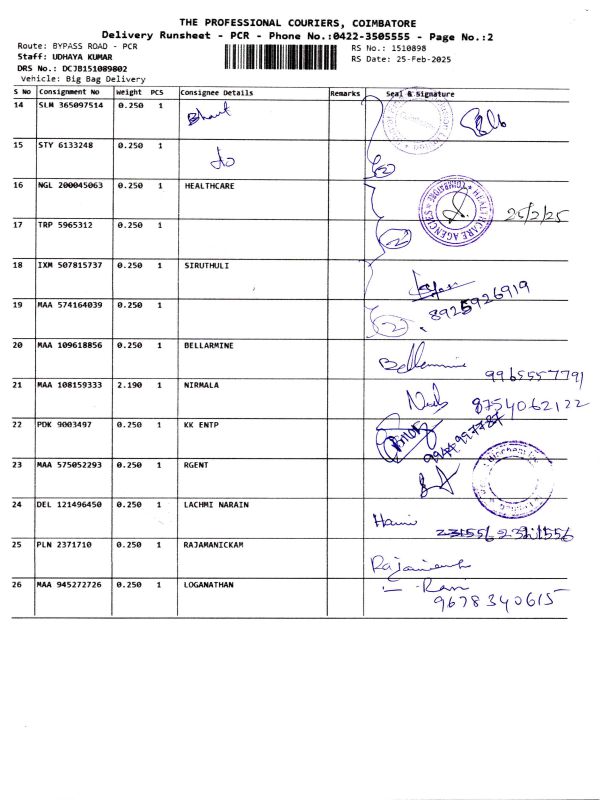 THE PROFESSIONAL COURIERS, COIMBATORE
Delivery Runsheet - PCR - Phone No.:0422-3505555 - Page No.:2
Route: BYPASS ROAD - PCR
Staff: UDHAYA KUMAR
DRS No.: DCJB151089802
Vehicle: Big Bag Delivery
RS No.: 1510898
RS Date: 25-Feb-2025
S No Consignment No Weight PCS Consignee Details Remarks Seal & Signature
14 SLM 365097514 0.250 1 Bhart
15 STY 6133248 0.250 1 do 2
16 NGL 200045063 0.250 1 HEALTHCARE HEALTHCARE AGENCIES COIMBATORE 25/2/25
17 TRP 5965312 0.250 1 2
18 IXM 507815737 0.250 1 SIRUTHULI
8925926919
19 MAA 574164039 0.250 1 2
20 MAA 109618856 0.250 1 BELLARMINE Bellarmine
9965557791
21 MAA 108159333 2.190 1 NIRMALA 8754062122
22 PDK 9003497 0.250 1 KK ENTP
23 MAA 575052293 0.250 1 RGENT
24 DEL 121496450 0.250 1 LACHMI NARAIN
25 PLN 2371710 0.250 1 RAJAMANICKAM Rajamanick
26 MAA 945272726 0.250 1 LOGANATHAN Ram
9678340615